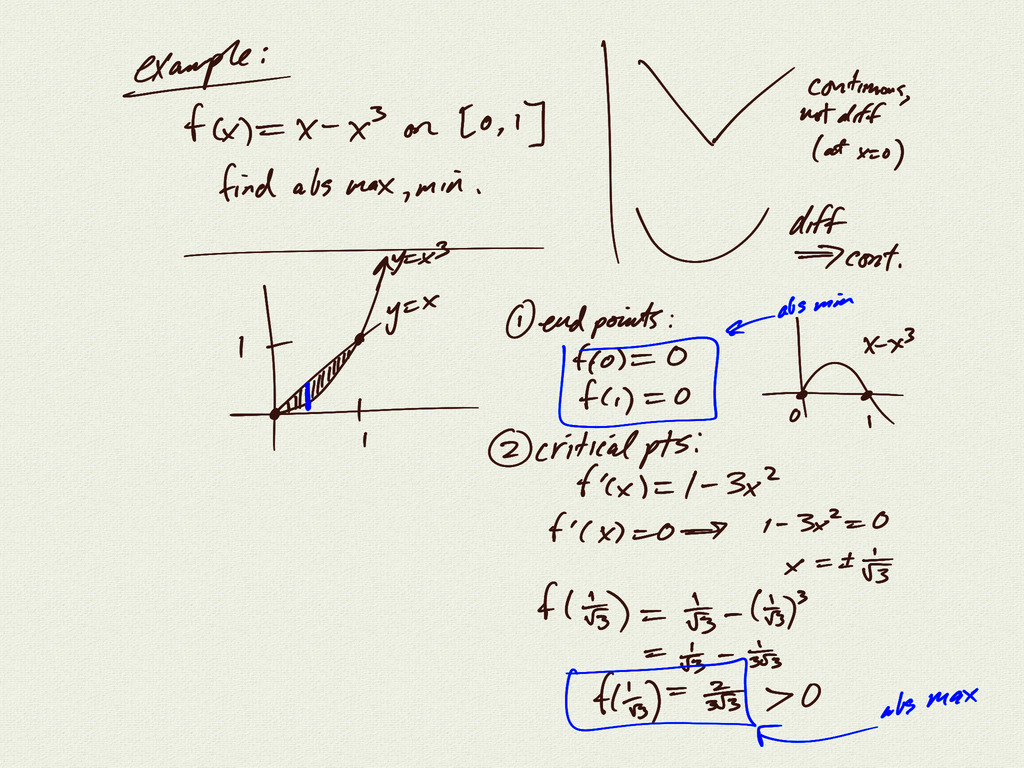 example:
f(x) = x - x³ on [0,1]
find abs max, min.
continuous,
not diff
(at x=0)
diff
⟹ cont.
y=x³
y=x
1
1
① end points:
f(0) = 0
f(1) = 0
abs min
x-x³
0
1
② critical pts:
f'(x) = 1 - 3x²
f'(x) = 0 ⟹ 1 - 3x² = 0
x = ± 1/√3
f(1/√3) = 1/√3 - (1/√3)³
= 1/√3 - 1/3√3
f(1/√3) = 2/3√3 > 0
abs max